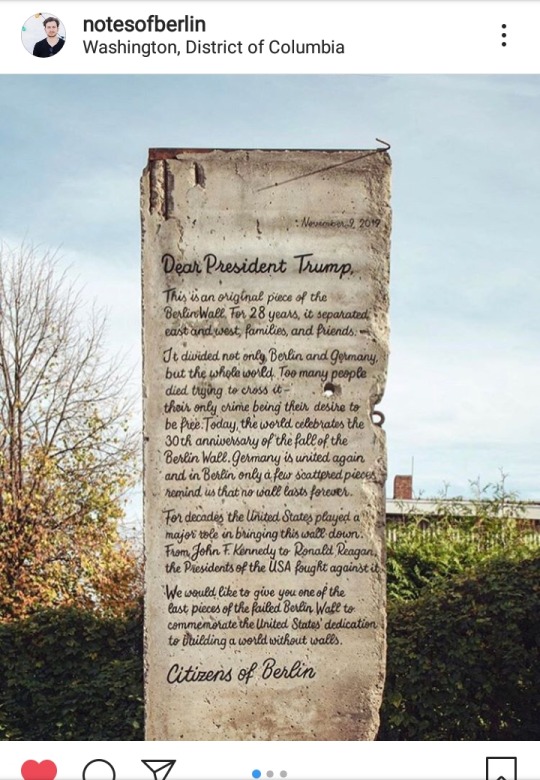 notesofberlin
Washington, District of Columbia
November 9, 2019
Dear President Trump,
This is an original piece of the
Berlin Wall. For 28 years, it separated
east and west, families, and friends.
It divided not only Berlin and Germany,
but the whole world. Too many people
died trying to cross it –
their only crime being their desire to
be free. Today, the world celebrates the
30th anniversary of the fall of the
Berlin Wall. Germany is united again
and in Berlin only a few scattered pieces
remind us that no wall lasts forever.
For decades the United States played a
major role in bringing this wall down.
From John F. Kennedy to Ronald Reagan,
the Presidents of the USA fought against it.
We would like to give you one of the
last pieces of the failed Berlin Wall to
commemorate the United States' dedication
to building a world without walls.
Citizens of Berlin